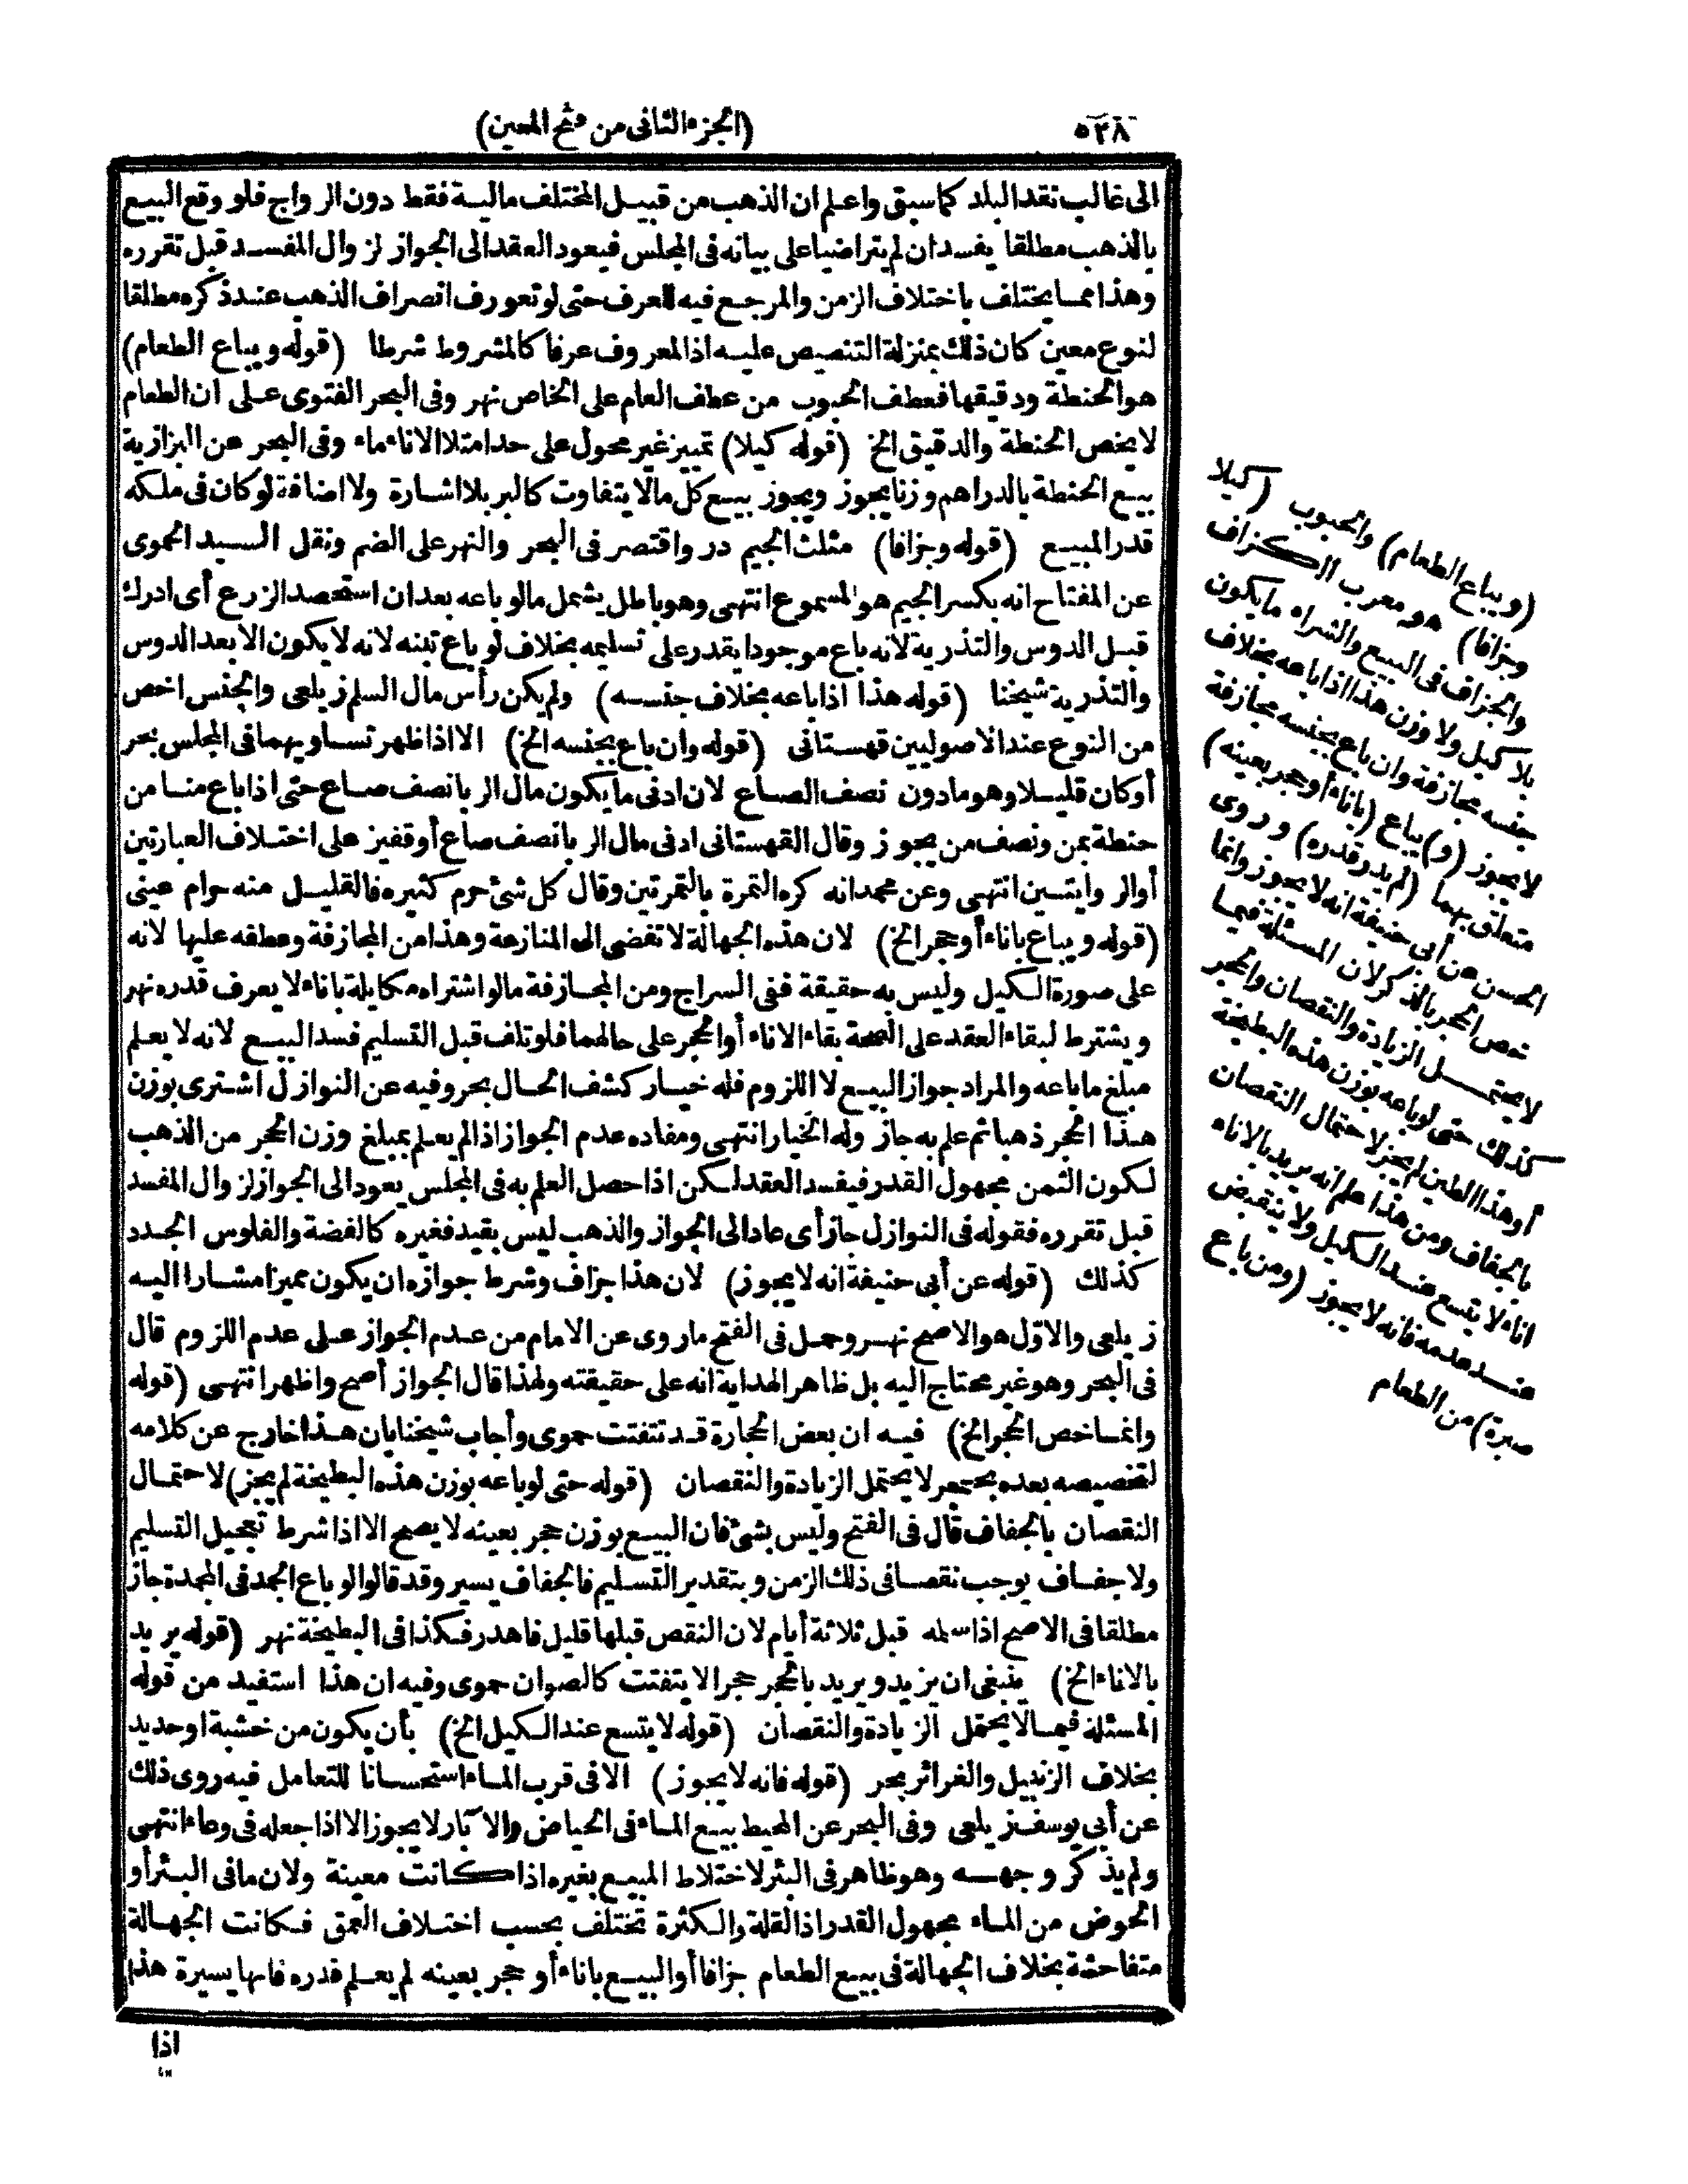 ٥٢٨
(الجزء الثانى من فتح المعين)
الى غالب نقد البلد كما سبق واعلم ان الذهب من قبيل المختلف مالية فقط دون الرواج فلو وقع البيع
بالذهب مطلقا يفسد ان لم يتراضيا على بيانه فى المجلس فيعود العقد الى الجواز لزوال المفسد قبل تقرره
وهذا مما يختلف باختلاف الزمن والمرجع فيه للعرف حتى لو تعورف انصراف الذهب عند ذكره مطلقا
لنوع معين كان ذلك بمنزلة التنصيص عليه اذ المعروف عرفا كالمشروط شرطا (قوله ويباع الطعام)
هو الحنطة ودقيقها فعطف الحبوب من عطف العام على الخاص نهر وفى البحر الفتوى على ان الطعام
لا يخص الحنطة والدقيق الخ (قوله كيلا) تمييز غير محول على حد امتلا الاناء ماء وفى البحر عن البزازية
بيع الحنطة بالدراهم وزنا يجوز ويجوز بيع كل مالا يتفاوت كالبر بلا اشارة ولا اضافة لو كان فى ملكه
قدر المبيع (قوله وجزافا) مثلث الجيم در واقتصر فى البحر والنهر على الضم ونقل السيد الحموى
عن المفتاح انه بكسر الجيم هو المسموع انتهى وهو باطل يشمل مالو باعه بعد ان استحصد الزرع أى ادرك
قبل الدوس والتذرية لانه باع موجودا يقدر على تسليمه بخلاف لو باع تبنه لانه لا يكون الا بعد الدوس
والتذرية شيخنا (قوله هذا اذا باعه بخلاف جنسه) ولم يكن رأس مال السلم زيلعى والجنس اخص
من النوع عند الاصوليين قهستانى (قوله وان باع بجنسه الخ) الا اذا ظهر تساويهما فى المجلس بحر
أو كان قليلا وهو مادون نصف الصاع لان ادنى ما يكون مال الربا نصف صاع حتى اذا باع منا من
حنطة بمن ونصف من يجوز وقال القهستانى ادنى مال الربا نصف صاع أو قفيز على اختلاف العبارتين
أو الروايتين انتهى وعن محمد انه كره التمرة بالتمرتين وقال كل شئ حرم كثيره فالقليل منه حرام عينى
(قوله ويباع باناء أو حجر الخ) لان هذه الجهالة لا تفضى الى المنازعة وهذا من المجازفة وعطفه عليها لانه
على صورة الكيل وليس به حقيقة ففى السراج ومن المجازفة مالو اشتراه مكايلة باناء لا يعرف قدره نهر
ويشترط لبقاء العقد على الصحة بقاء الاناء أو الحجر على حالهما فلو تلف قبل التسليم فسد البيع لانه لا يعلم
مبلغ ما باعه والمراد جواز البيع لا اللزوم فله خيار كشف الحال بحر وفيه عن النوازل اشترى بوزن
هذا الحجر ذهبا ثم علم به جاز وله الخيار انتهى ومفاده عدم الجواز اذا لم يعلم بمبلغ وزن الحجر من الذهب
لكون الثمن مجهول القدر فيفسد العقد لكن اذا حصل العلم به فى المجلس يعود الى الجواز لزوال المفسد
قبل تقرره فقوله فى النوازل جاز أى عاد الى الجواز والذهب ليس بقيد فغيره كالفضة والفلوس الجدد
كذلك (قوله عن أبى حنيفة انه لا يجوز) لان هذا جزاف وشرط جوازه ان يكون مميزا مشارا اليه
زيلعى والاوّل هو الاصح نهر وحمل فى الفتح ما روى عن الامام من عدم الجواز على عدم اللزوم قال
فى البحر وهو غير محتاج اليه بل ظاهر الهداية انه على حقيقته ولهذا قال الجواز أصح واظهر انتهى (قوله
وانما خص الحجر الخ) فيه ان بعض الحجارة قد تتفتت حموى وأجاب شيخنا بان هذا خارج عن كلامه
لتخصيصه بعده بحجر لا يحتمل الزيادة والنقصان (قوله حتى لو باعه بوزن هذه البطيخة لم يجز) لاحتمال
النقصان بالجفاف قال فى الفتح وليس بشئ فان البيع بوزن حجر بعينه لا يصح الا اذا شرط تعجيل التسليم
ولا جفاف يوجب نقصا فى ذلك الزمن وبتقدير التسليم فالجفاف يسير وقد قالوا لو باع الجمد فى المجمدة جاز
مطلقا فى الاصح اذا سلمه قبل ثلاثة أيام لان النقص قبلها قليل فاهدر فكذا فى البطيخة نهر (قوله يريد
بالاناء الخ) ينبغى ان يزيد ويريد بالحجر حجرا لا يتفتت كالصوان حموى وفيه ان هذا استفيد من قوله
المسئلة فيما لا يحتمل الزيادة والنقصان (قوله لا يتسع عند الكيل الخ) بأن يكون من خشبة او حديد
بخلاف الزنبيل والغرائر بحر (قوله فانه لا يجوز) الا فى قرب الماء استحسانا للتعامل فيه روى ذلك
عن أبى يوسف زيلعى وفى البحر عن المحيط بيع الماء فى الحياض والآبار لا يجوز الا اذا جعله فى وعاء انتهى
ولم يذكر وجهه وهو ظاهر فى البئر لاختلاط المبيع بغيره اذا كانت معينة ولان ما فى البئر أو
الحوض من الماء مجهول القدر اذ القلة والكثرة تختلف بحسب اختلاف العمق فكانت الجهالة
متفاحشة بخلاف الجهالة فى بيع الطعام جزافا أو البيع باناء أو حجر بعينه لم يعلم قدره فانها يسيرة هذا
اذا
(ويباع الطعام) والحبوب (كيلا
وجزافا) هو معرب الكزاف
والجزاف فى البيع والشراء ما يكون
بلا كيل ولا وزن هذا اذا باعه بخلاف
جنسه مجازفة وان باع بجنسه مجازفة
لا يجوز (و) يباع (باناء أو حجر بعينه)
متعلق بهما (لم يدر قدره) وروى
الحسن عن أبى حنيفة انه لا يجوز وانما
خص الحجر بالذكر لان المسئلة فيما
لا يحتمل الزيادة والنقصان والحجر
كذلك حتى لو باعه بوزن هذه البطيخة
أو هذا الطين لم يجز لاحتمال النقصان
بالجفاف ومن هذا علم انه يريد بالاناء
اناء لا يتسع عند الكيل ولا ينقبض
عند عدمه فانه لا يجوز (ومن باع
صبرة) من الطعام